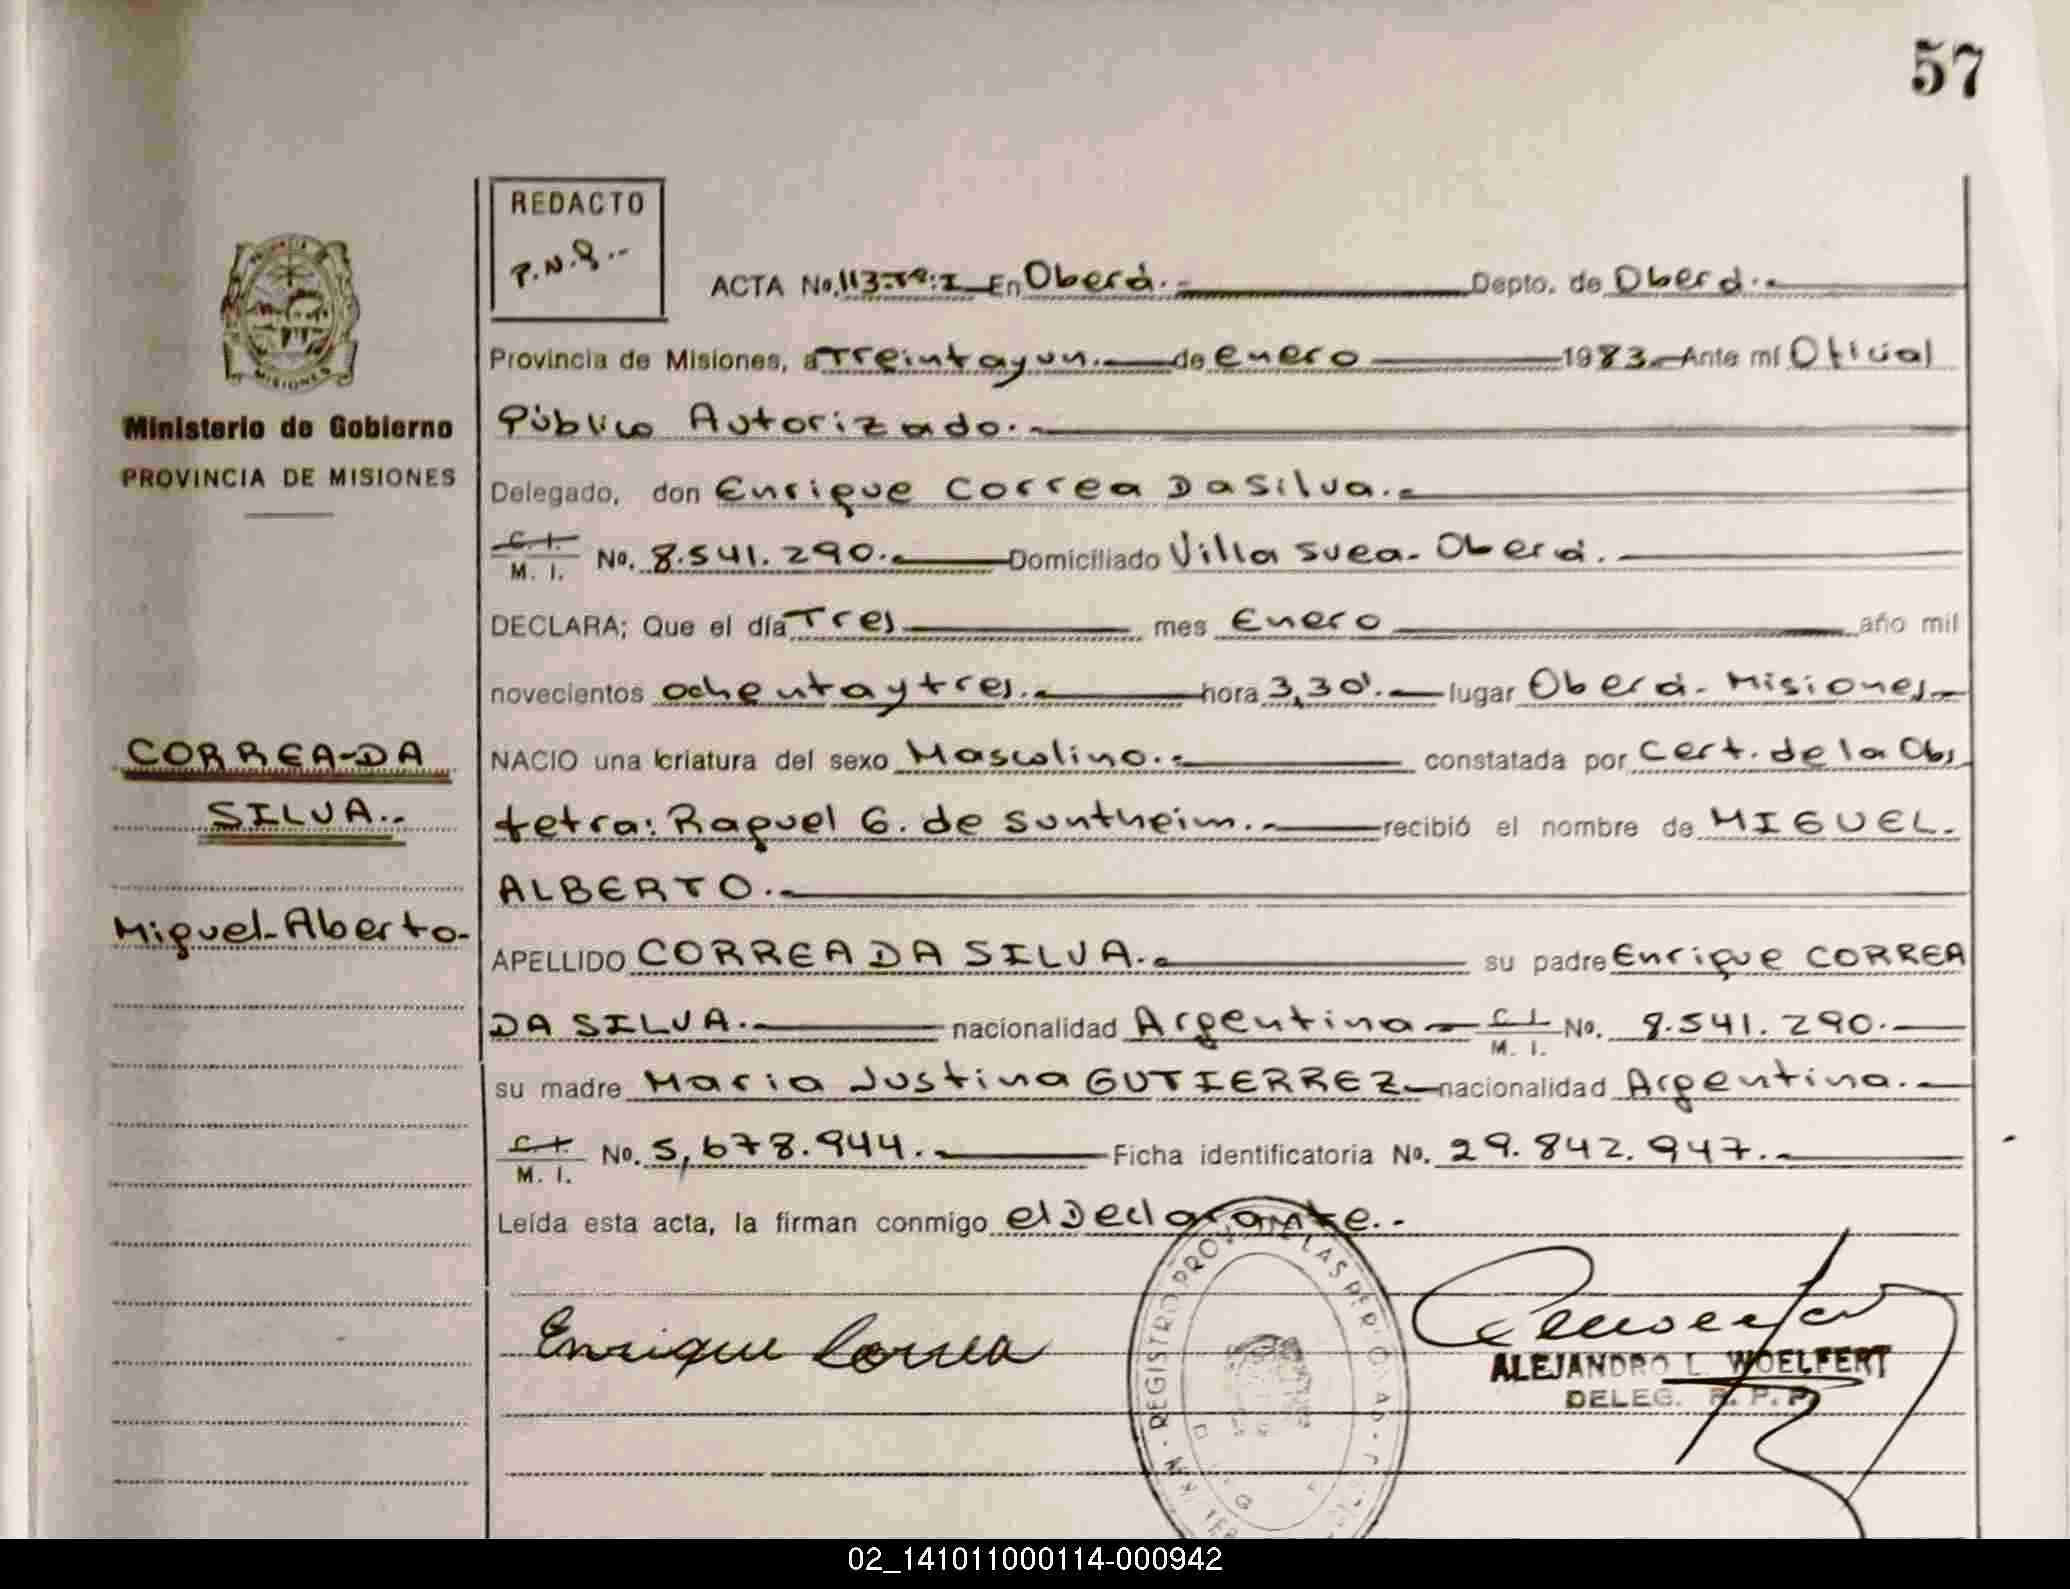 57
REDACTO
P.N.G.--
MISIONES
Ministerio de Gobierno
PROVINCIA DE MISIONES
ACTA No. 113-Tº:I En Oberá.- Depto. de Oberá.-
Provincia de Misiones, a Treintayun.- de enero 1983.- Ante mí Oficial
Público Autorizado.-
Delegado, don Enrique Correa DaSilva.-
C. I.
M. I. No. 8.541.290.- Domiciliado Villa Svea- Oberá.-
DECLARA; Que el día Tres mes Enero año mil
novecientos ochentaytres.- hora 3,30'.- lugar Oberá- Misiones-
NACIO una criatura del sexo Masculino.- constatada por Cert. de la Obs
tetra: Raquel G. de Suntheim.- recibió el nombre de MIGUEL-
ALBERTO.-
APELLIDO CORREA DA SILVA.- su padre Enrique CORREA
DA SILVA.- nacionalidad Argentina- C. I.
M. I. No. 8.541.290.-
su madre Maria Justina GUTIERREZ- nacionalidad Argentina.-
C. I.
M. I. No. 5,678.944.- Ficha identificatoria No. 29.842.947.-
Leída esta acta, la firman conmigo el Declarante.-
CORREA-DA
SILVA.-
Miguel-Aberto-
Enrique Correa
REGISTRO PROV. DE LAS PER
ALEJANDRO L. WOELFERT
DELEG. R. P. P.
02_141011000114-000942